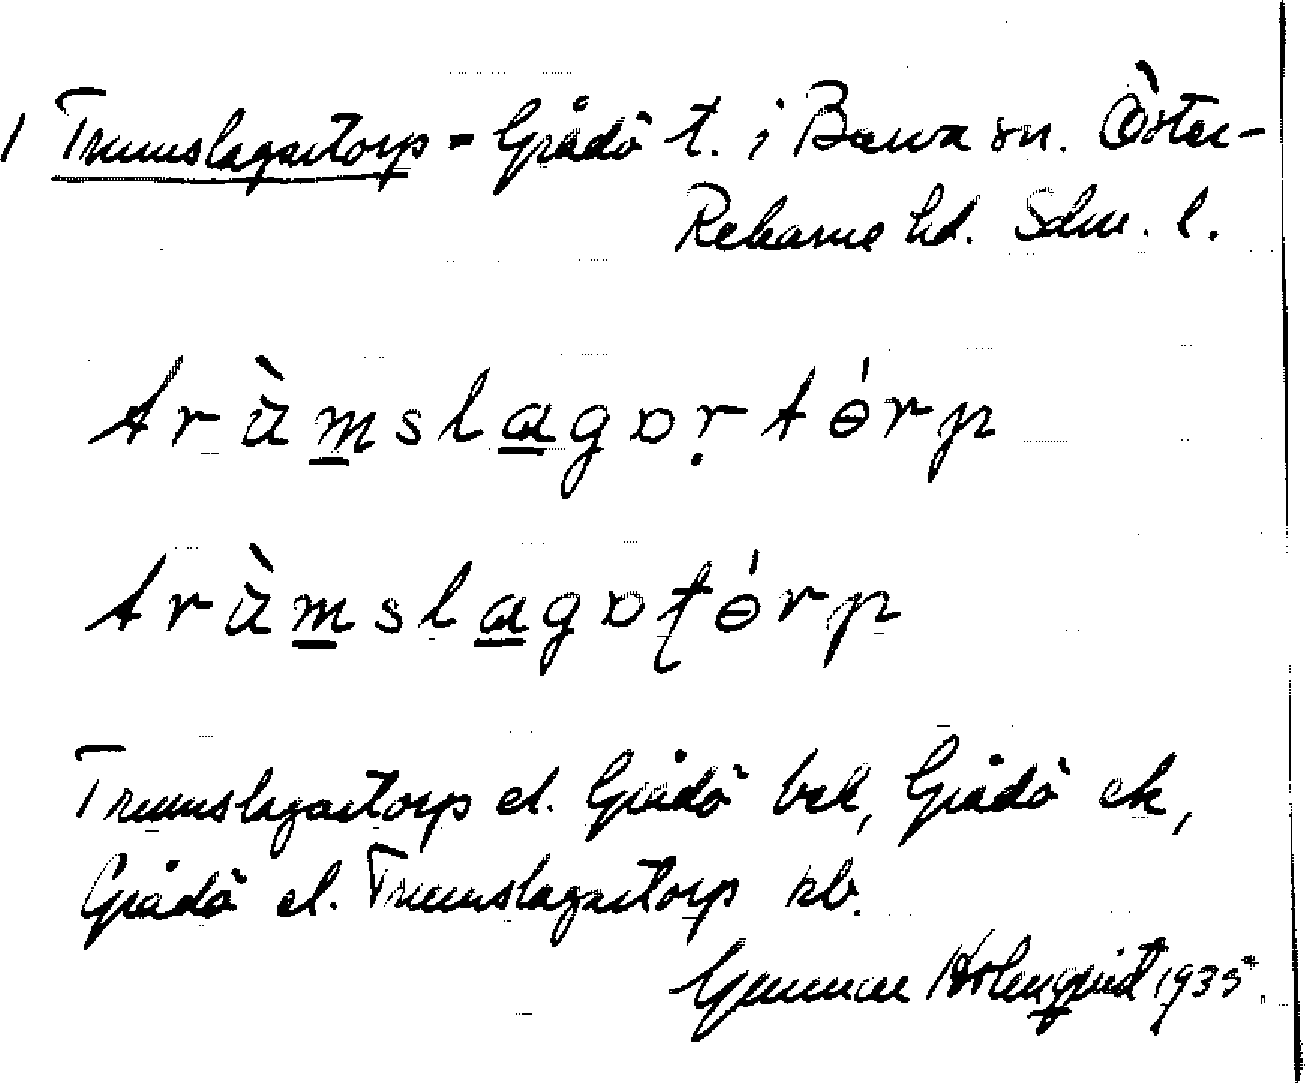 1 Trumslagartorp = Grådö t. i Barva sn. Öster-
Rekarne hd. Sdm. l.
trùmslagɒṛtɵ́rp
trùmslagɒʈɵ́rp
Trumslagartorp el. Grådö bek, Grådö ek,
Grådö el. Trumslagartorp kb.
Gunnar Holmquist 1935.